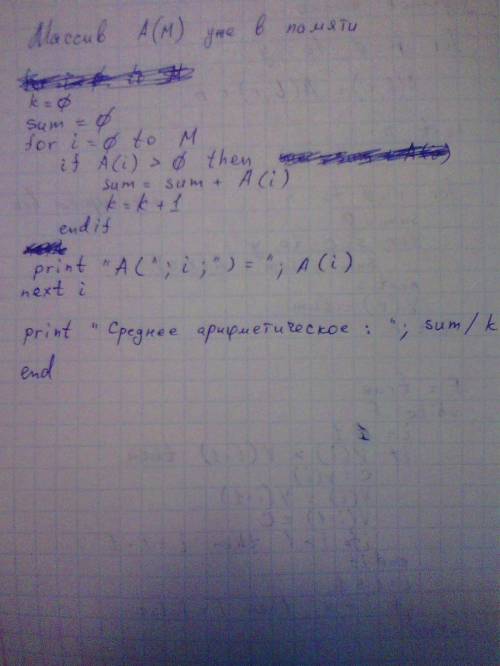 Массив A(M) уже в памяти
k=0
sum = 0
for i=0 to M
if A(i) > 0 then
sum = sum + A(i)
k = k + 1
endif
print "A("; i ;") = "; A(i)
next i
print "Среднее арифметическое : "; sum/k
end